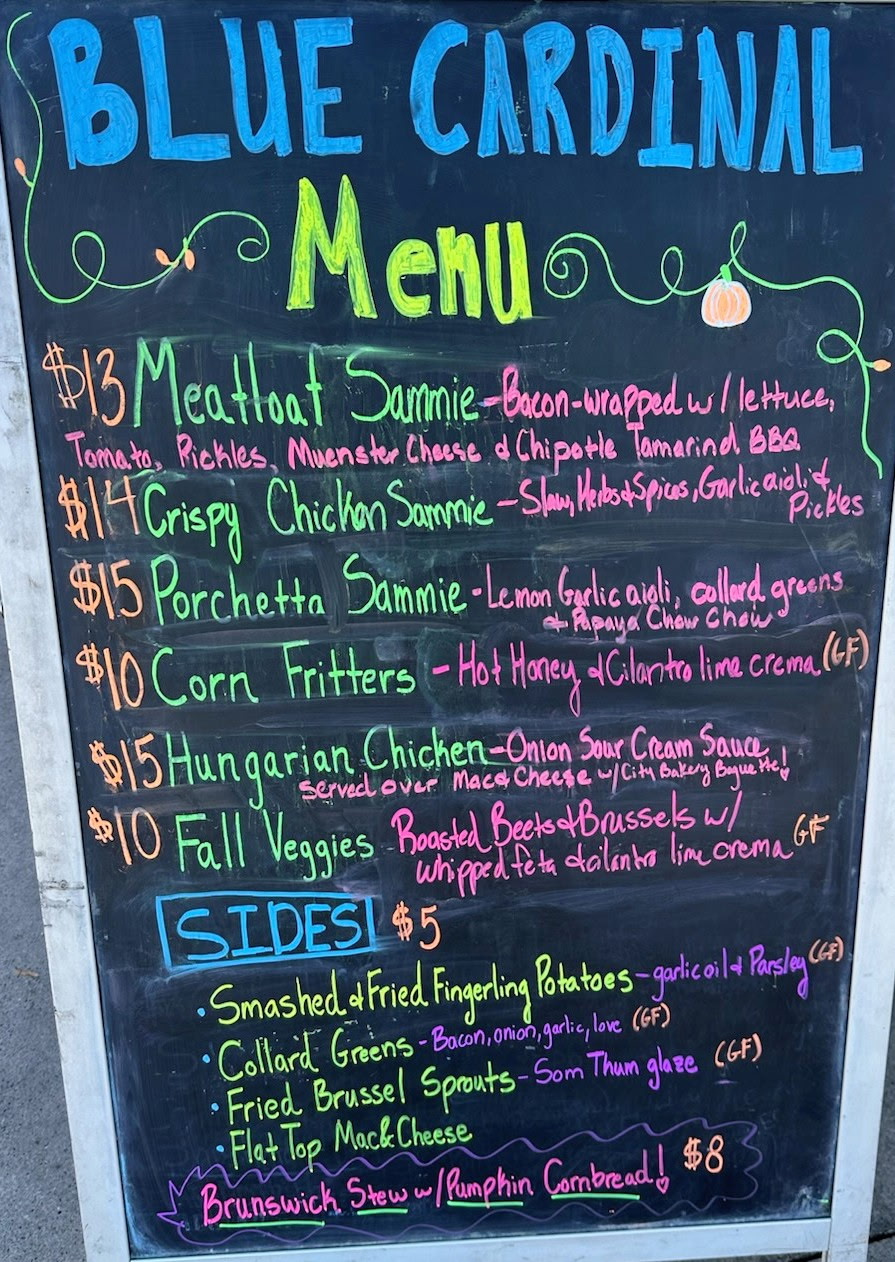 BLUE CARDINAL
Menu
$13 Meatloaf Sammie - Bacon-wrapped w/ lettuce,
Tomato, Pickles, Muenster Cheese & Chipotle Tamarind BBQ
$14 Crispy Chicken Sammie - Slaw, Herbs & Spices, Garlic aioli &
Pickles
$15 Porchetta Sammie - Lemon Garlic aioli, collard greens
& Papaya Chow Chow
$10 Corn Fritters - Hot Honey & Cilantro lime crema (GF)
$15 Hungarian Chicken - Onion Sour Cream Sauce
served over Mac & Cheese w/ City Bakery Baguette!
$10 Fall Veggies Roasted Beets & Brussels w/
whipped feta & cilantro lime crema GF
SIDES $5
• Smashed & Fried Fingerling Potatoes - garlic oil & Parsley (GF)
• Collard Greens - Bacon, onion, garlic, love (GF)
• Fried Brussel Sprouts - Som Thum glaze (GF)
• Flat Top Mac & Cheese
Brunswick Stew w/ Pumpkin Cornbread! $8